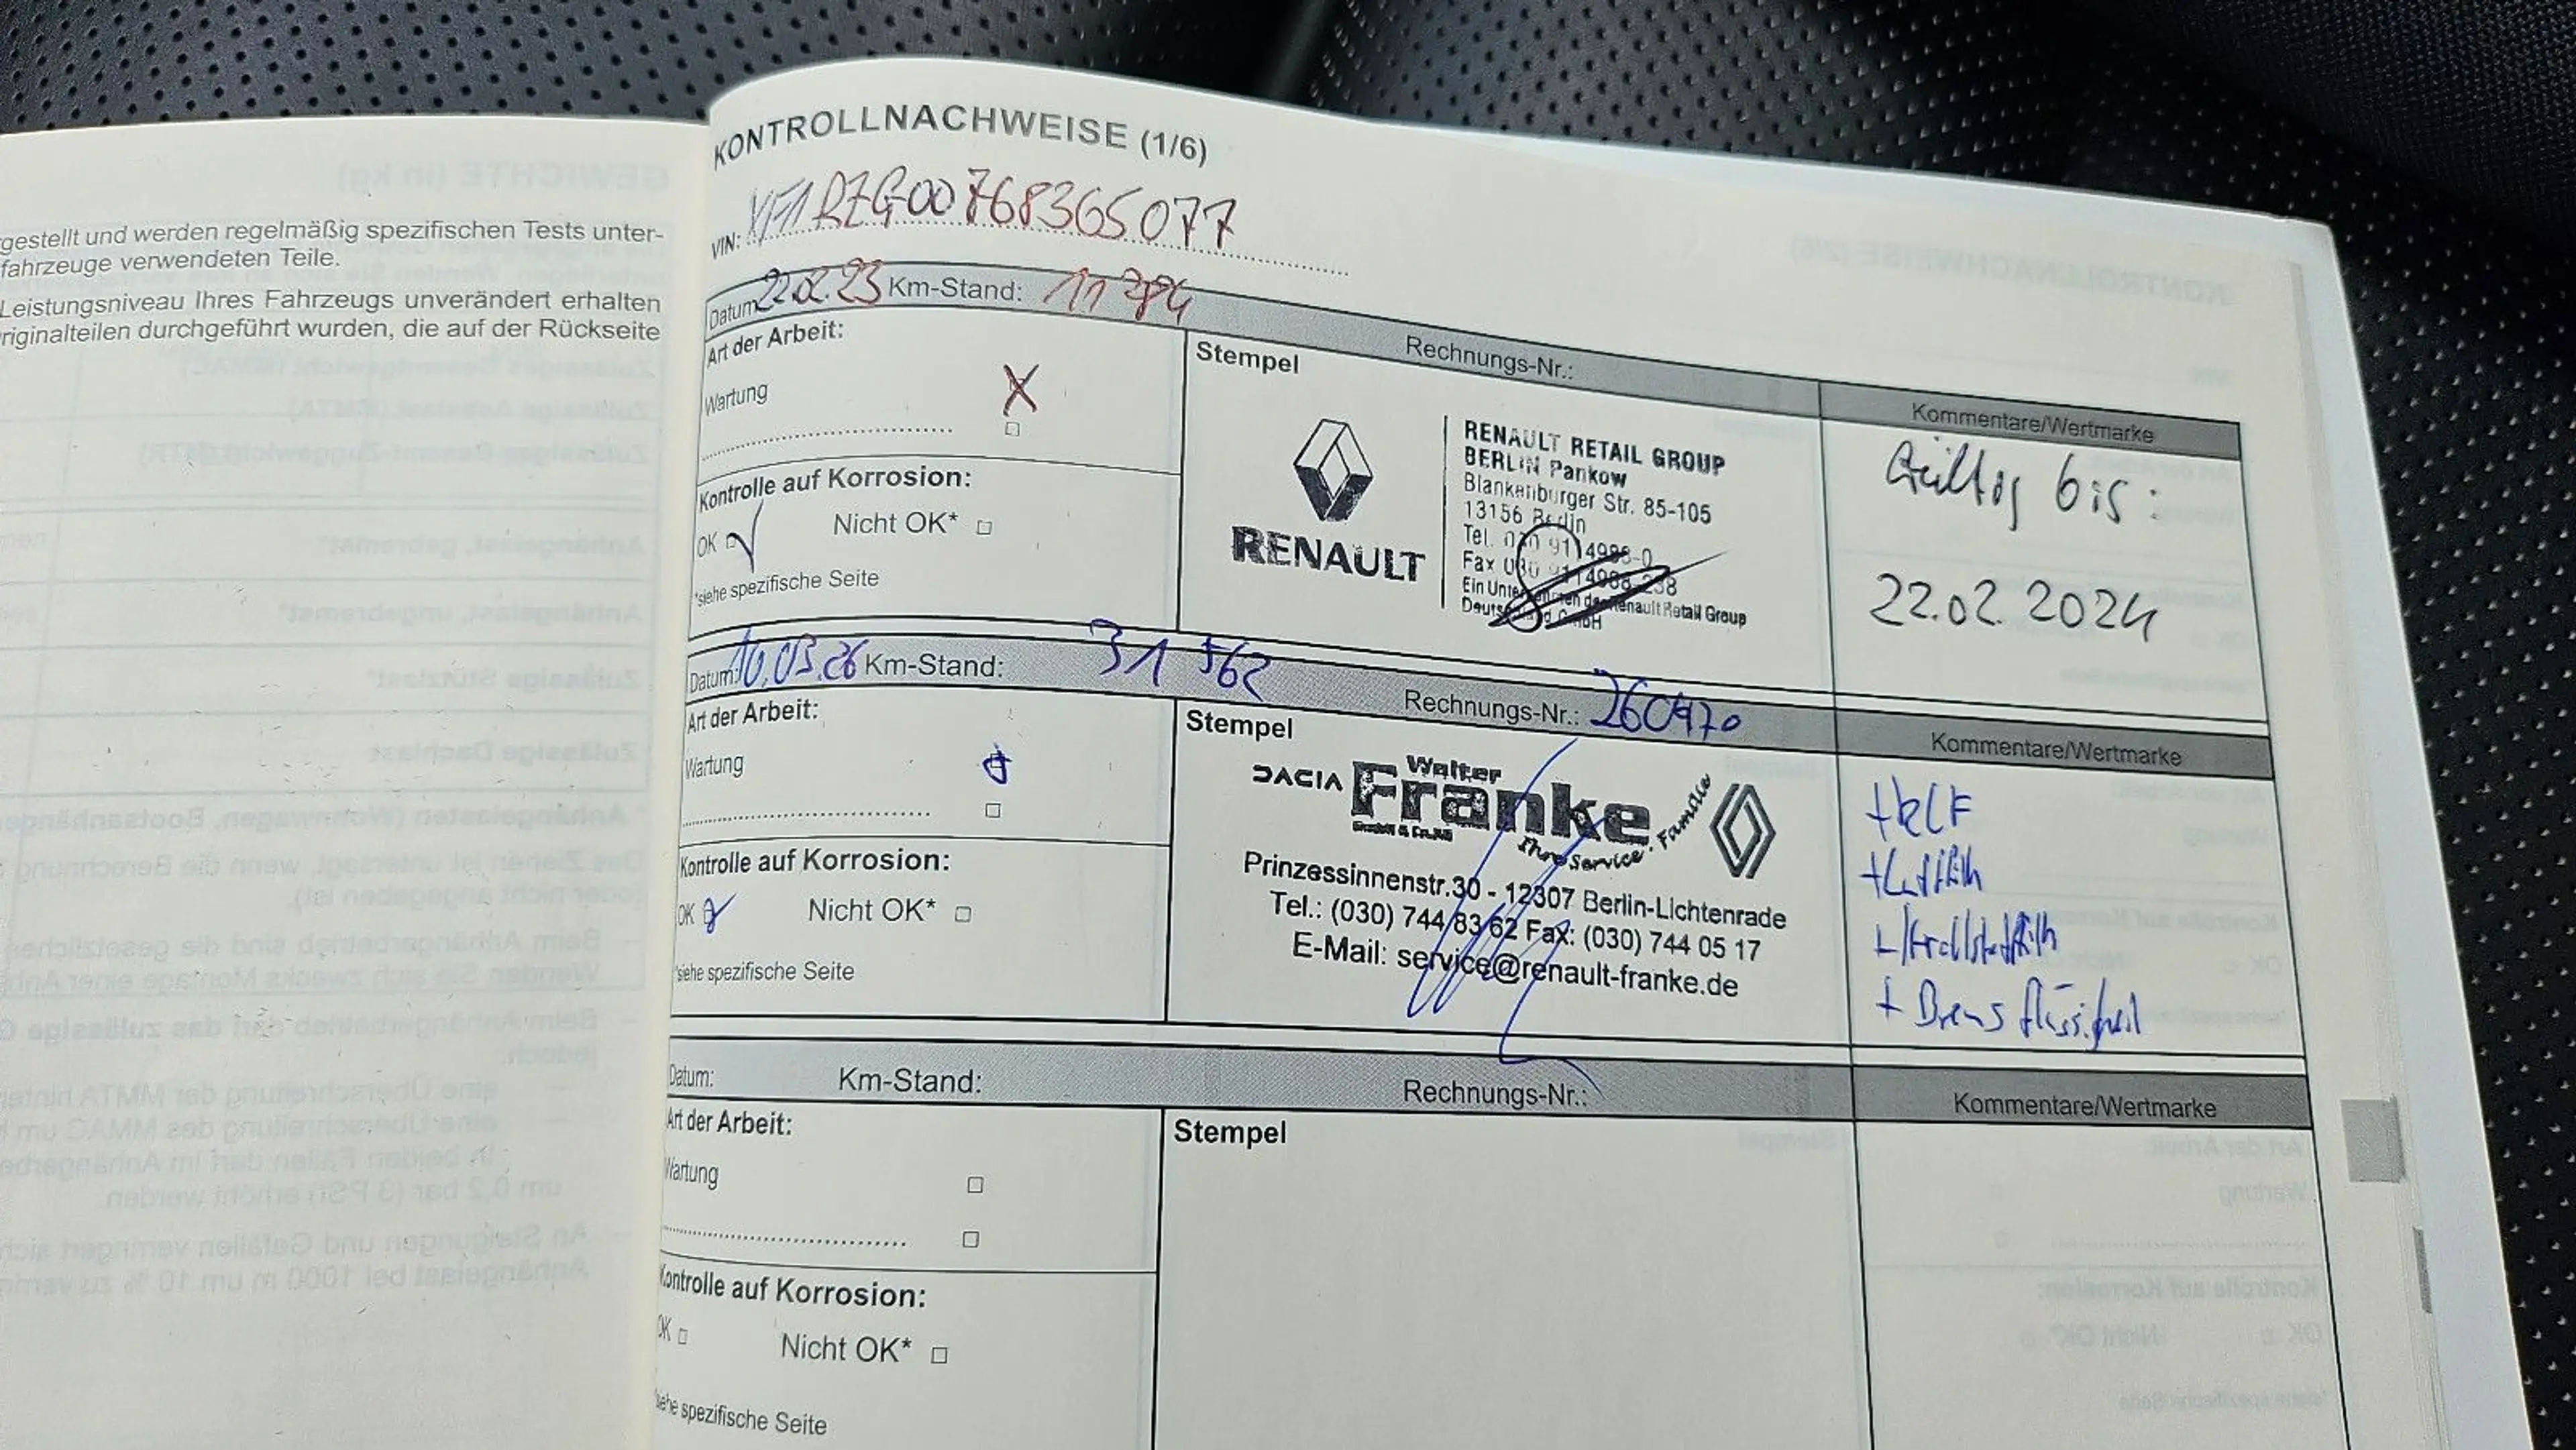 gestellt und werden regelmäßig spezifischen Tests unter-
fahrzeuge verwendeten Teile.
Leistungsniveau Ihres Fahrzeugs unverändert erhalten
riginalteilen durchgeführt wurden, die auf der Rückseite
KONTROLLNACHWEISE (1/6)
VIN: VF1RZG00768365077
Datum: 22.02.23 Km-Stand: 11
Rechnungs-Nr.:
Kommentare/Wertmarke
Art der Arbeit:
Wartung X
Kontrolle auf Korrosion:
OK Nicht OK*
*siehe spezifische Seite
Stempel
RENAULT
RENAULT RETAIL GROUP
BERLIN Pankow
Blankenburger Str. 85-105
13156 Berlin
Tel. 030 9114988-0
Fax 030 9114988-238
Ein Unternehmen der Renault Retail Group
Deutschland GmbH
Gültig bis:
22.02.2024
Datum: 10.03.26 Km-Stand: 31 562
Rechnungs-Nr.: 260970
Kommentare/Wertmarke
Art der Arbeit:
Wartung
Kontrolle auf Korrosion:
OK Nicht OK*
*siehe spezifische Seite
Stempel
DACIA Walter Franke
GmbH & Co.KG
Ihre Service-Familie
Prinzessinnenstr.30 - 12307 Berlin-Lichtenrade
Tel.: (030) 744 83 62 Fax: (030) 744 05 17
E-Mail: service@renault-franke.de
+ Bremsflüssigkeit
Datum: Km-Stand:
Rechnungs-Nr.:
Kommentare/Wertmarke
Art der Arbeit:
Wartung
Kontrolle auf Korrosion:
OK Nicht OK*
*siehe spezifische Seite
Stempel